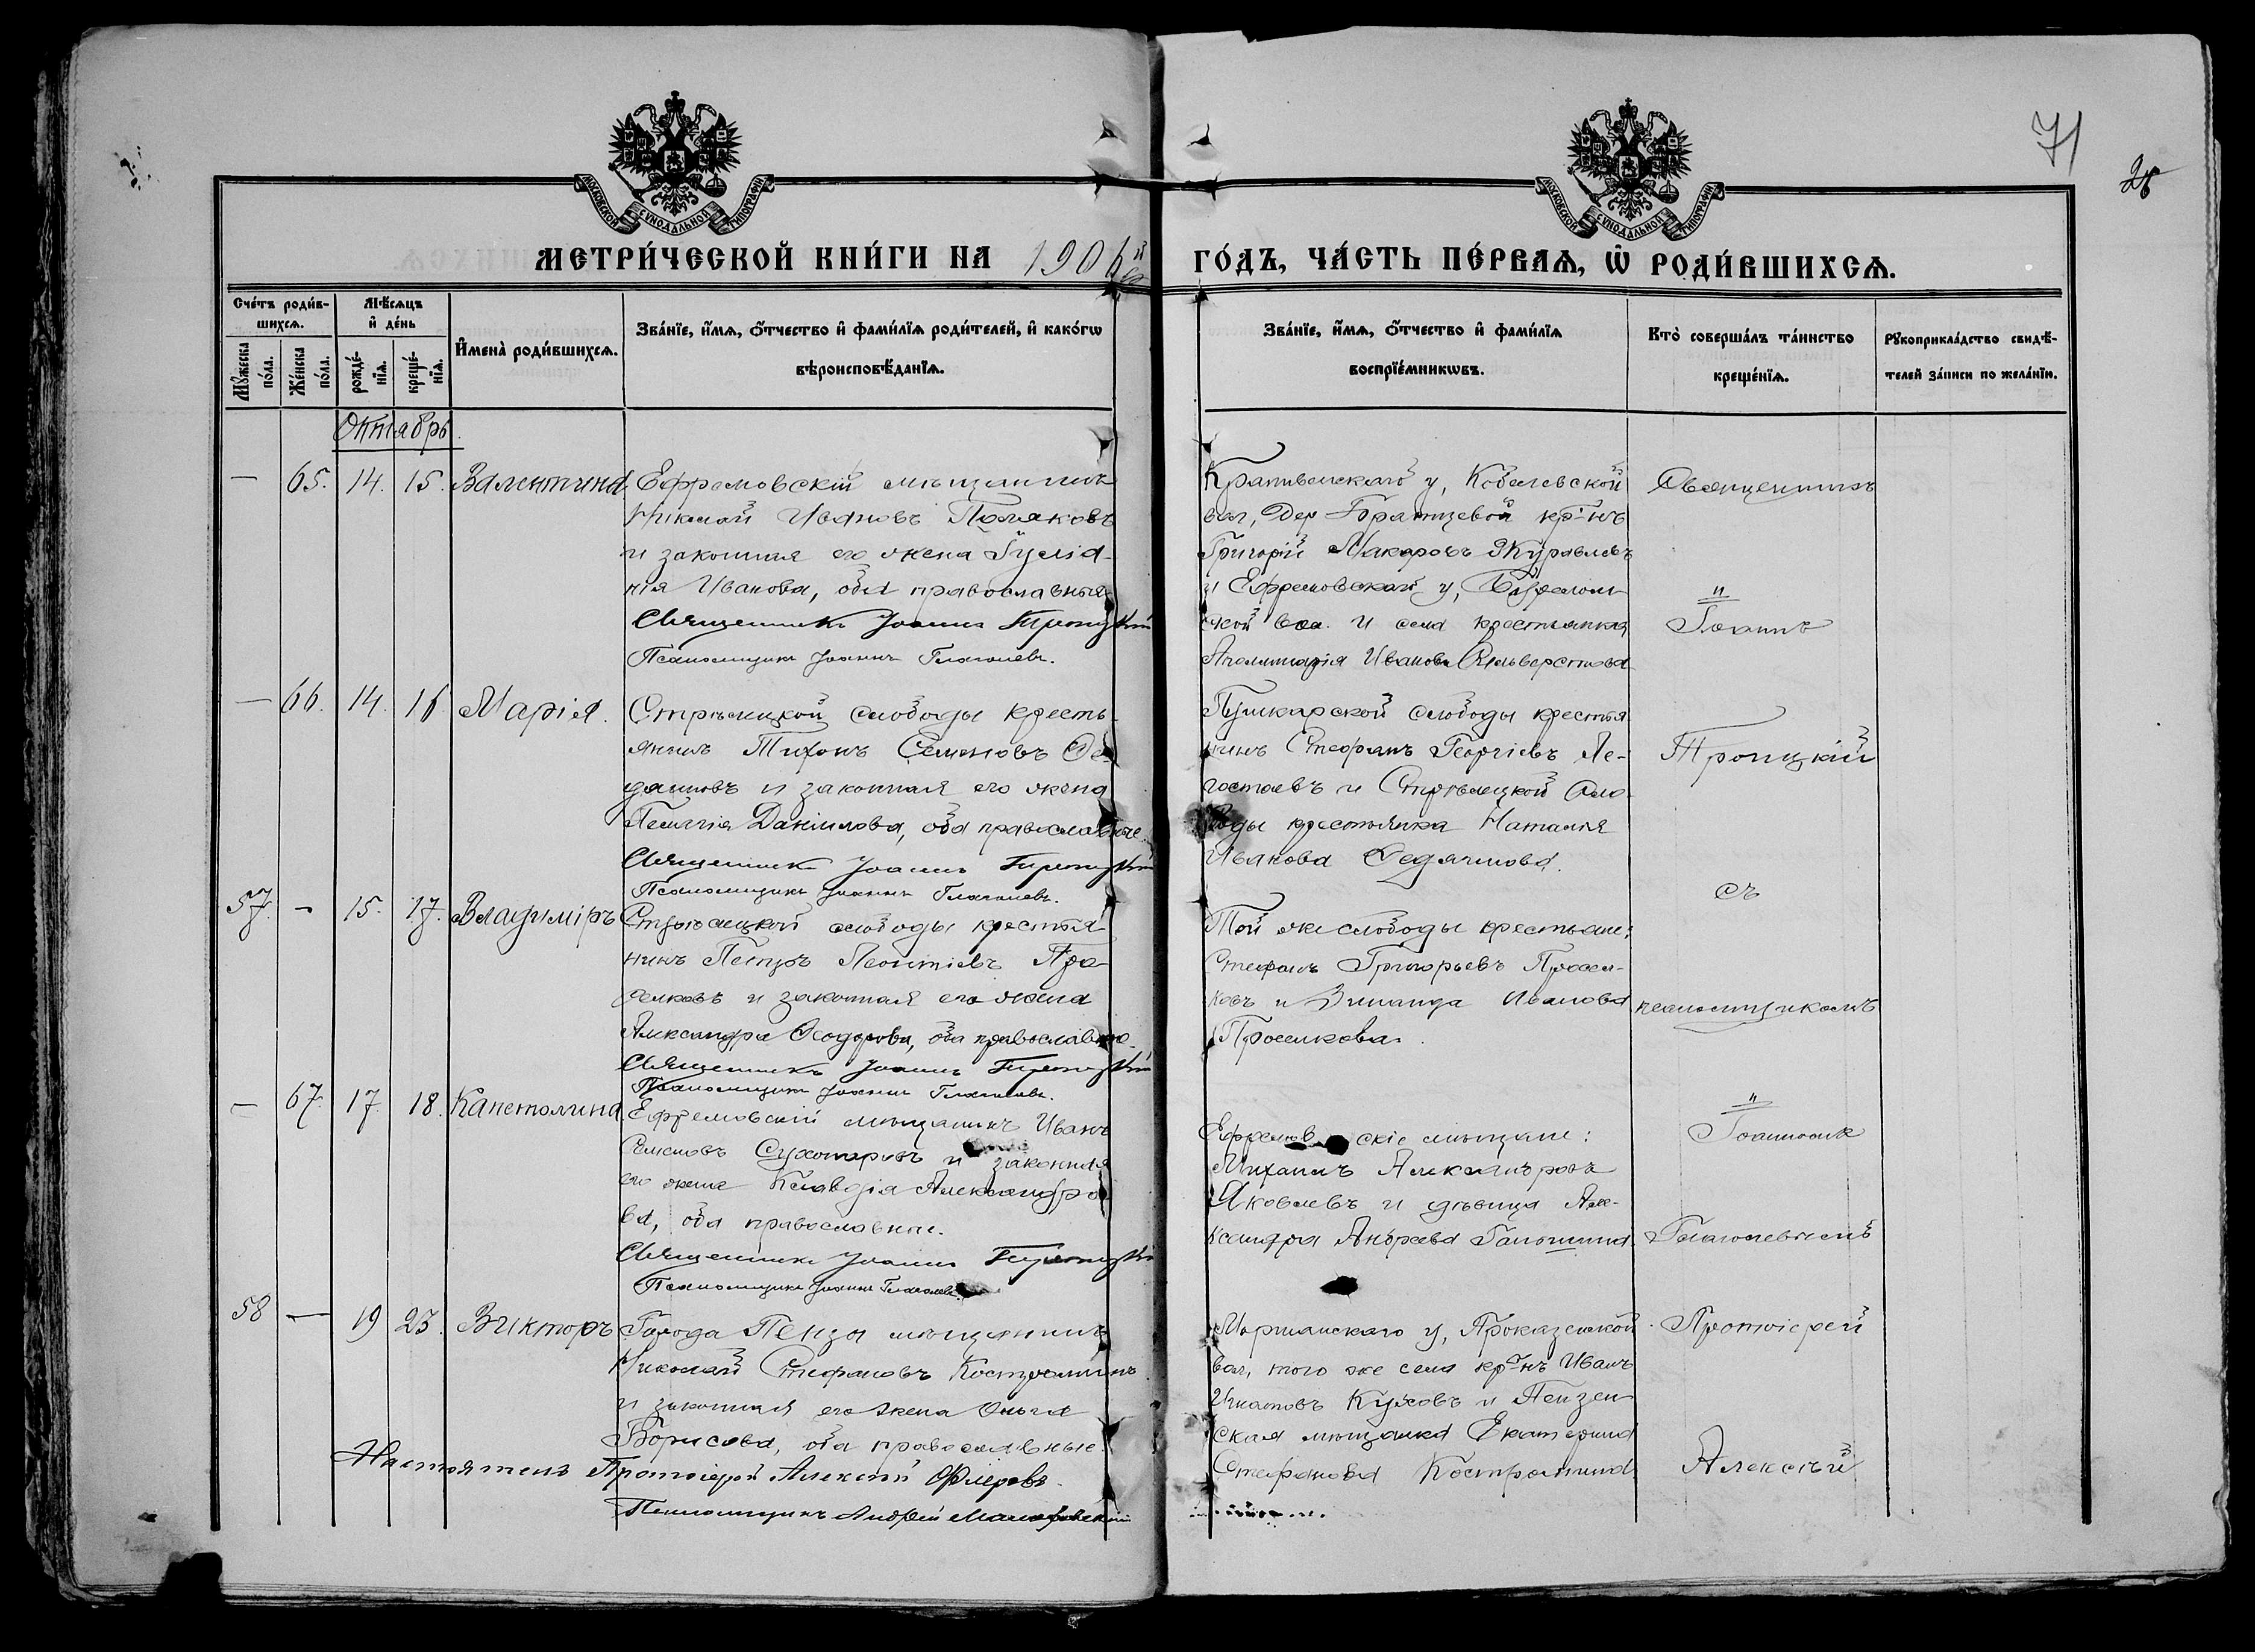 71
28
МОСКОВСКОЙ СУНОДАЛЬНОЙ ТИПОГРАФІИ
МОСКОВСКОЙ СУНОДАЛЬНОЙ ТИПОГРАФІИ
МЕТРИ́ЧЕСКОЙ КНИ́ГИ НА 1906й
ГО́ДЪ, ЧА́СТЬ ПЕ́РВАѦ, Ѡ҆ РОДИ́ВШИХСѦ.
Сче́тъ роди́в-
шихсѧ.
Мꙋ́жеска по́ла.
Же́нска по́ла.
Мѣ́сѧцъ
и҆ де́нь
рожде́-
нїѧ.
креще́-
нїѧ.
И҆мена̀ роди́вшихсѧ.
Зва́нїе, и҆́мѧ, ѻ҆́тчество и҆ фами́лїѧ роди́телей, и҆ како́гѡ
вѣроисповѣ́данїѧ.
Зва́нїе, и҆́мѧ, ѻ҆́тчество и҆ фами́лїѧ
воспрїе́мникѡвъ.
Кто̀ соверша́лъ та́инство
креще́нїѧ.
Рꙋкоприкла́дство свидѣ́-
телей за́писи по жела́нїю.
Октябрь.
— 65. 14. 15. Валентина
Ефремовскій мѣщанинъ
Николай Ивановъ Поляковъ
и законная его жена Іуліа-
нія Иванова, оба православные
Священникъ Іоаннъ Троицкій
Псаломщикъ Іоаннъ Глаголевъ.
Крапивенскаго у, Кобелевской
вол, Дер кр-нъ
Григорій Макаровъ Журавлевъ
и Ефремовской у,
вол. и села крестьянка
Иванова Сильверстова
Священникъ
Іоаннъ
— 66. 14. 16 Марія.
Стрѣлецкой слободы кресть-
янинъ Тихонъ Семеновъ Ѳе-
дяшовъ и законная его жена
Пелагія Даніилова, оба православные.
Священникъ Іоаннъ Троицкій
Псаломщикъ Іоаннъ Глаголевъ.
Пушкарской слободы крестья-
нинъ Стефанъ Георгіевъ Ле-
гостаевъ и Стрѣлецкой сло-
боды крестьянка Наталія
Иванова
Троицкій
съ
57. — 15. 17. Владиміръ
Стрѣлецкой слободы крестья-
нинъ Петръ Леонтіевъ Про-
селковъ и законная его жена
Александра Ѳеодорова, оба православные.
Священникъ Іоаннъ Троицкій
Псаломщикъ Іоаннъ Глаголевъ.
Той же слободы крестьяне:
Стефанъ Григорьевъ Просел-
ковъ и Зинаида Иванова
Проселкова.
псаломщикомъ
— 67. 17. 18. Капетолина
Ефремовскій мѣщанинъ Иванъ
Семеновъ Сухотеринъ и законная
его жена Клавдія Александро-
ва, оба православные.
Священникъ Іоаннъ Троицкій
Псаломщикъ Іоаннъ Глаголевъ.
Ефремовскіе мѣщане:
Михаилъ Александровъ
Яковлевъ и дѣвица Але-
ксандра Андреева
Іоанномъ
Глаголевымъ
58 — 19 23. Викторъ
Города Пензы мѣщанинъ
Николай Стефановъ Костроминъ
и законная его жена Ольга
Борисова, оба православные
Настоятель Протоіерей Алексій Флеровъ.
Псаломщикъ Андрей
Моршанскаго у,
вол, того же села кр-нъ Иванъ
Игнатовъ и Пензен-
ская мѣщанка Екатерина
Стефанова Костромина
Протоіерей
Алексѣй